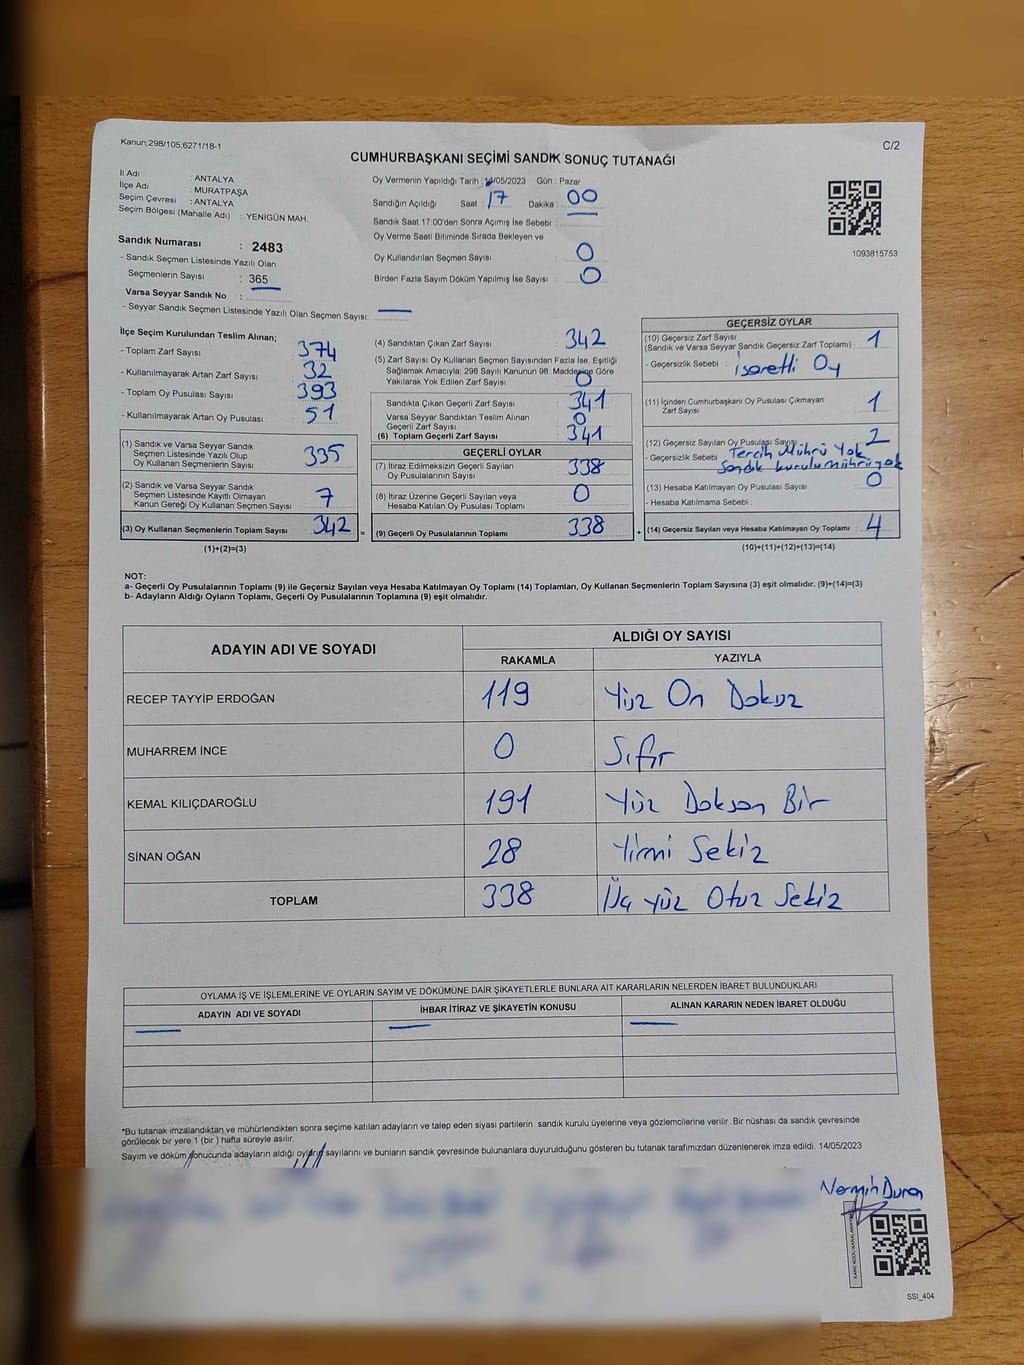 Kanun;298/105;6271/18-1
C/2
CUMHURBAŞKANI SEÇİMİ SANDIK SONUÇ TUTANAĞI
İl Adı : ANTALYA
İlçe Adı : MURATPAŞA
Seçim Çevresi : ANTALYA
Seçim Bölgesi (Mahalle Adı) : YENİGÜN MAH.
Sandık Numarası : 2483
- Sandık Seçmen Listesinde Yazılı Olan
Seçmenlerin Sayısı : 365
Varsa Seyyar Sandık No :
- Seyyar Sandık Seçmen Listesinde Yazılı Olan Seçmen Sayısı:
Oy Vermenin Yapıldığı Tarih : 14/05/2023 Gün : Pazar
Sandığın Açıldığı Saat : 17 Dakika : 00
Sandık Saat 17:00'den Sonra Açımış İse Sebebi :
Oy Verme Saati Bitiminde Sırada Bekleyen ve
Oy Kullandırılan Seçmen Sayısı : 0
Birden Fazla Sayım Döküm Yapılmış İse Sayısı : 0
1093815753
İlçe Seçim Kurulundan Teslim Alınan;
- Toplam Zarf Sayısı : 374
- Kullanılmayarak Artan Zarf Sayısı : 32
- Toplam Oy Pusulası Sayısı : 393
- Kullanılmayarak Artan Oy Pusulası : 51
(1) Sandık ve Varsa Seyyar Sandık
Seçmen Listesinde Yazılı Olup
Oy Kullanan Seçmenlerin Sayısı : 335
(2) Sandık ve Varsa Seyyar Sandık
Seçmen Listesinde Kayıtlı Olmayan
Kanun Gereği Oy Kullanan Seçmen Sayısı : 7
(3) Oy Kullanan Seçmenlerin Toplam Sayısı : 342
(1)+(2)=(3)
(4) Sandıktan Çıkan Zarf Sayısı : 342
(5) Zarf Sayısı Oy Kullanan Seçmen Sayısından Fazla İse, Eşitliği
Sağlamak Amacıyla; 298 Sayılı Kanunun 98. Maddesine Göre
Yakılarak Yok Edilen Zarf Sayısı : 0
Sandıkta Çıkan Geçerli Zarf Sayısı : 341
Varsa Seyyar Sandıktan Teslim Alınan
Geçerli Zarf Sayısı : 0
(6) Toplam Geçerli Zarf Sayısı : 341
GEÇERLİ OYLAR
(7) İtiraz Edilmeksizin Geçerli Sayılan
Oy Pusulalarının Sayısı : 338
(8) İtiraz Üzerine Geçerli Sayılan veya
Hesaba Katılan Oy Pusulaları Toplamı : 0
= (9) Geçerli Oy Pusulalarının Toplamı : 338 +
GEÇERSİZ OYLAR
(10) Geçersiz Zarf Sayısı
(Sandık ve Varsa Seyyar Sandık Geçersiz Zarf Toplamı) : 1
- Geçersizlik Sebebi : İsaretli Oy
(11) İçinden Cumhurbaşkanı Oy Pusulası Çıkmayan
Zarf Sayısı : 1
(12) Geçersiz Sayılan Oy Pusulası Sayısı : 2
- Geçersizlik Sebebi : Tercih Mührü Yok
Sandık kurulu mührü yok
(13) Hesaba Katılmayan Oy Pusulası Sayısı : 0
- Hesaba Katılmama Sebebi :
(14) Geçersiz Sayılan veya Hesaba Katılmayan Oy Toplamı : 4
(10)+(11)+(12)+(13)=(14)
NOT:
a- Geçerli Oy Pusulalarının Toplamı (9) ile Geçersiz Sayılan veya Hesaba Katılmayan Oy Toplamı (14) Toplamları, Oy Kullanan Seçmenlerin Toplam Sayısına (3) eşit olmalıdır. (9)+(14)=(3)
b- Adayların Aldığı Oyların Toplamı, Geçerli Oy Pusulalarının Toplamına (9) eşit olmalıdır.
ADAYIN ADI VE SOYADI
ALDIĞI OY SAYISI
RAKAMLA YAZIYLA
RECEP TAYYİP ERDOĞAN 119 Yüz On Dokuz
MUHARREM İNCE 0 Sıfır
KEMAL KILIÇDAROĞLU 191 Yüz Doksan Bir
SİNAN OĞAN 28 Yirmi Sekiz
TOPLAM 338 Üç Yüz Otuz Sekiz
OYLAMA İŞ VE İŞLEMLERİNE VE OYLARIN SAYIM VE DÖKÜMÜNE DAİR ŞİKAYETLERLE BUNLARA AİT KARARLARIN NELERDEN İBARET BULUNDUKLARI
ADAYIN ADI VE SOYADI İHBAR İTİRAZ VE ŞİKAYETİN KONUSU ALINAN KARARIN NEDEN İBARET OLDUĞU
*Bu tutanak imzalandıktan ve mühürlendikten sonra seçime katılan adayların ve talep eden siyasi partilerin sandık kurulu üyelerine veya gözlemcilerine verilir .Bir nüshası da sandık çevresinde
görülecek bir yere 1 (bir ) hafta süreyle asılır.
Sayım ve döküm sonucunda adayların aldığı oyların sayılarını ve bunların sandık çevresinde bulunanlara duyurulduğunu gösteren bu tutanak tarafımızdan düzenlenerek imza edildi. 14/05/2023
Nermin Duran
SSI_404